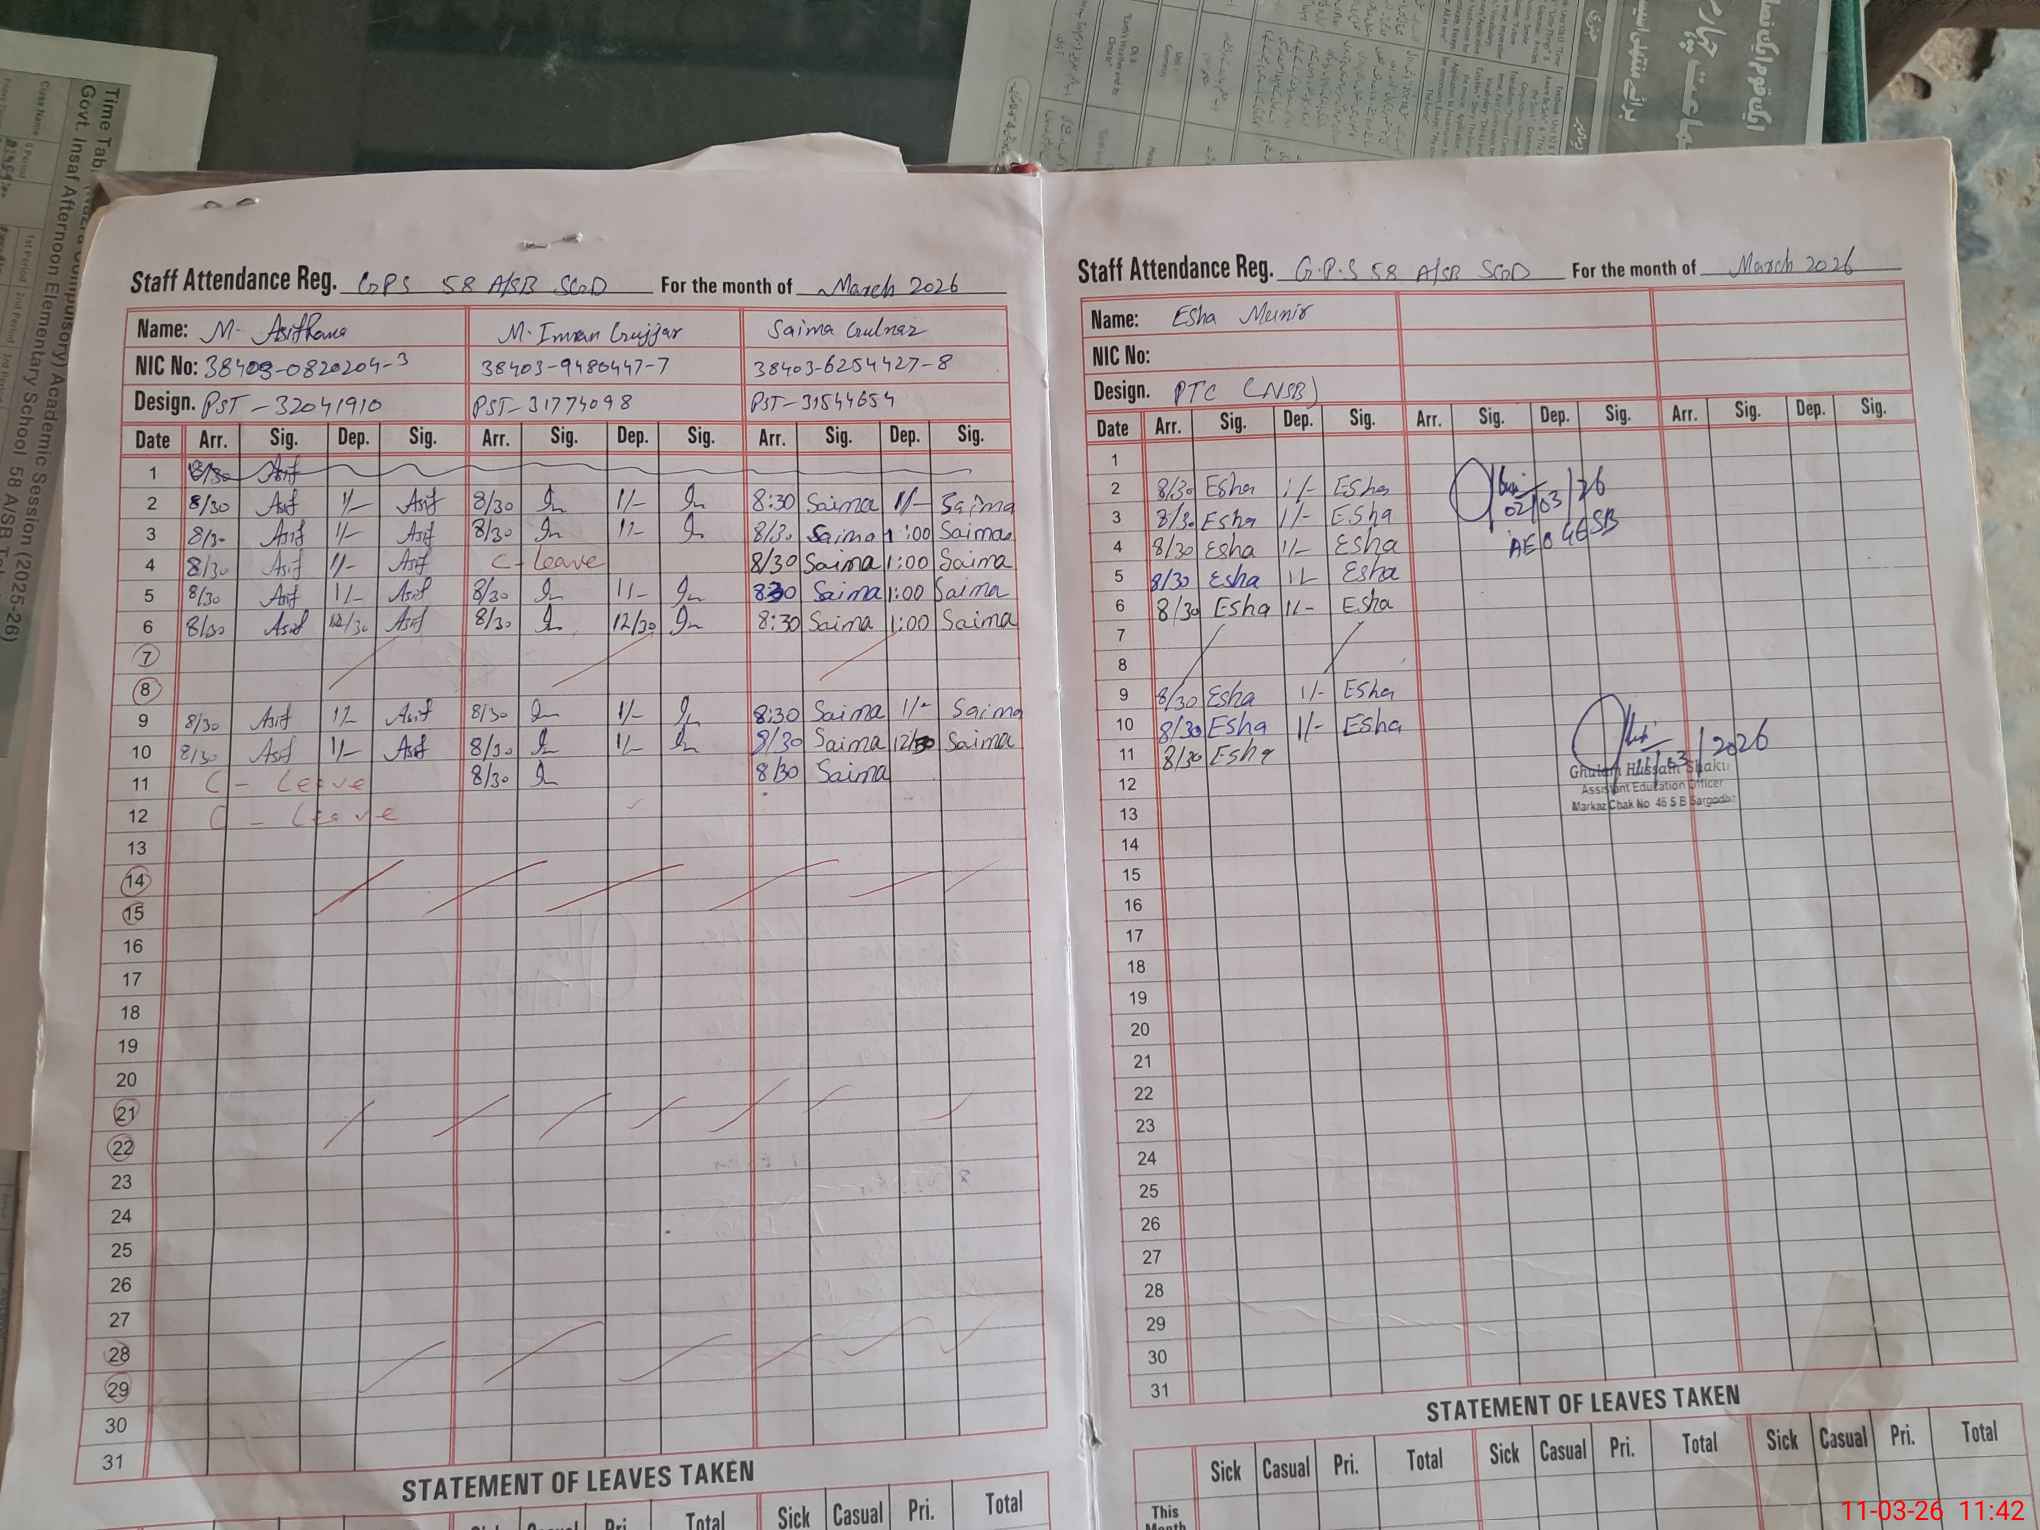 Staff Attendance Reg. GPS 58 A/SB SGD For the month of March 2026
Name: M. Asif Rana M. Imran Gujjar Saima Gulnaz
NIC No: 38403-0820204-3 38403-9480447-7 38403-6254427-8
Design. PST-32041910 PST-31774098 PST-31544654
Date Arr. Sig. Dep. Sig. Arr. Sig. Dep. Sig. Arr. Sig. Dep. Sig.
1 8/30 Asif
2 8/30 Asif 1/- Asif 8/30 1/- 8:30 Saima 1/- Saima
3 8/30 Asif 1/- Asif 8/30 1/- 8/30 Saima 1:00 Saima
4 8/30 Asif 1/- Asif C-leave 8/30 Saima 1:00 Saima
5 8/30 Asif 1/- Asif 8/30 1/- 8:30 Saima 1:00 Saima
6 8/30 Asif 12/30 Asif 8/30 12/30 8:30 Saima 1:00 Saima
7
8
9 8/30 Asif 1/- Asif 8/30 1/- 8:30 Saima 1/- Saima
10 8/30 Asif 1/- Asif 8/30 1/- 8/30 Saima 12/30 Saima
11 C-Leave 8/30 8/30 Saima
12 C-Leave
13
14
15
16
17
18
19
20
21
22
23
24
25
26
27
28
29
30
31
STATEMENT OF LEAVES TAKEN
Sick Casual Pri. Total Sick Casual Pri. Total
Staff Attendance Reg. G.P.S 58 A/SB SGD For the month of March 2026
Name: Esha Munir
NIC No:
Design. PTC (NSB)
Date Arr. Sig. Dep. Sig. Arr. Sig. Dep. Sig. Arr. Sig. Dep. Sig.
1
2 8/30 Esha 1/- Esha
02/03/26
3 8/30 Esha 1/- Esha
AEO 46SB
4 8/30 Esha 1/- Esha
5 8/30 Esha 1/- Esha
6 8/30 Esha 1/- Esha
7
8
9 8/30 Esha 1/- Esha
10 8/30 Esha 1/- Esha
11 8/30 Esha
11/03/2026
Ghulam Hussain Shakir
Assistant Education Officer
Markaz Chak No 46 S B Sargodha
12
13
14
15
16
17
18
19
20
21
22
23
24
25
26
27
28
29
30
31
STATEMENT OF LEAVES TAKEN
Sick Casual Pri. Total Sick Casual Pri. Total Sick Casual Pri. Total
This
Month
Time Table
Govt. Insaf Afternoon Elementary School 58 A/SB
Academic Session (2025-26)
Class Name
1st Period 2nd Period
11-03-26 11:42